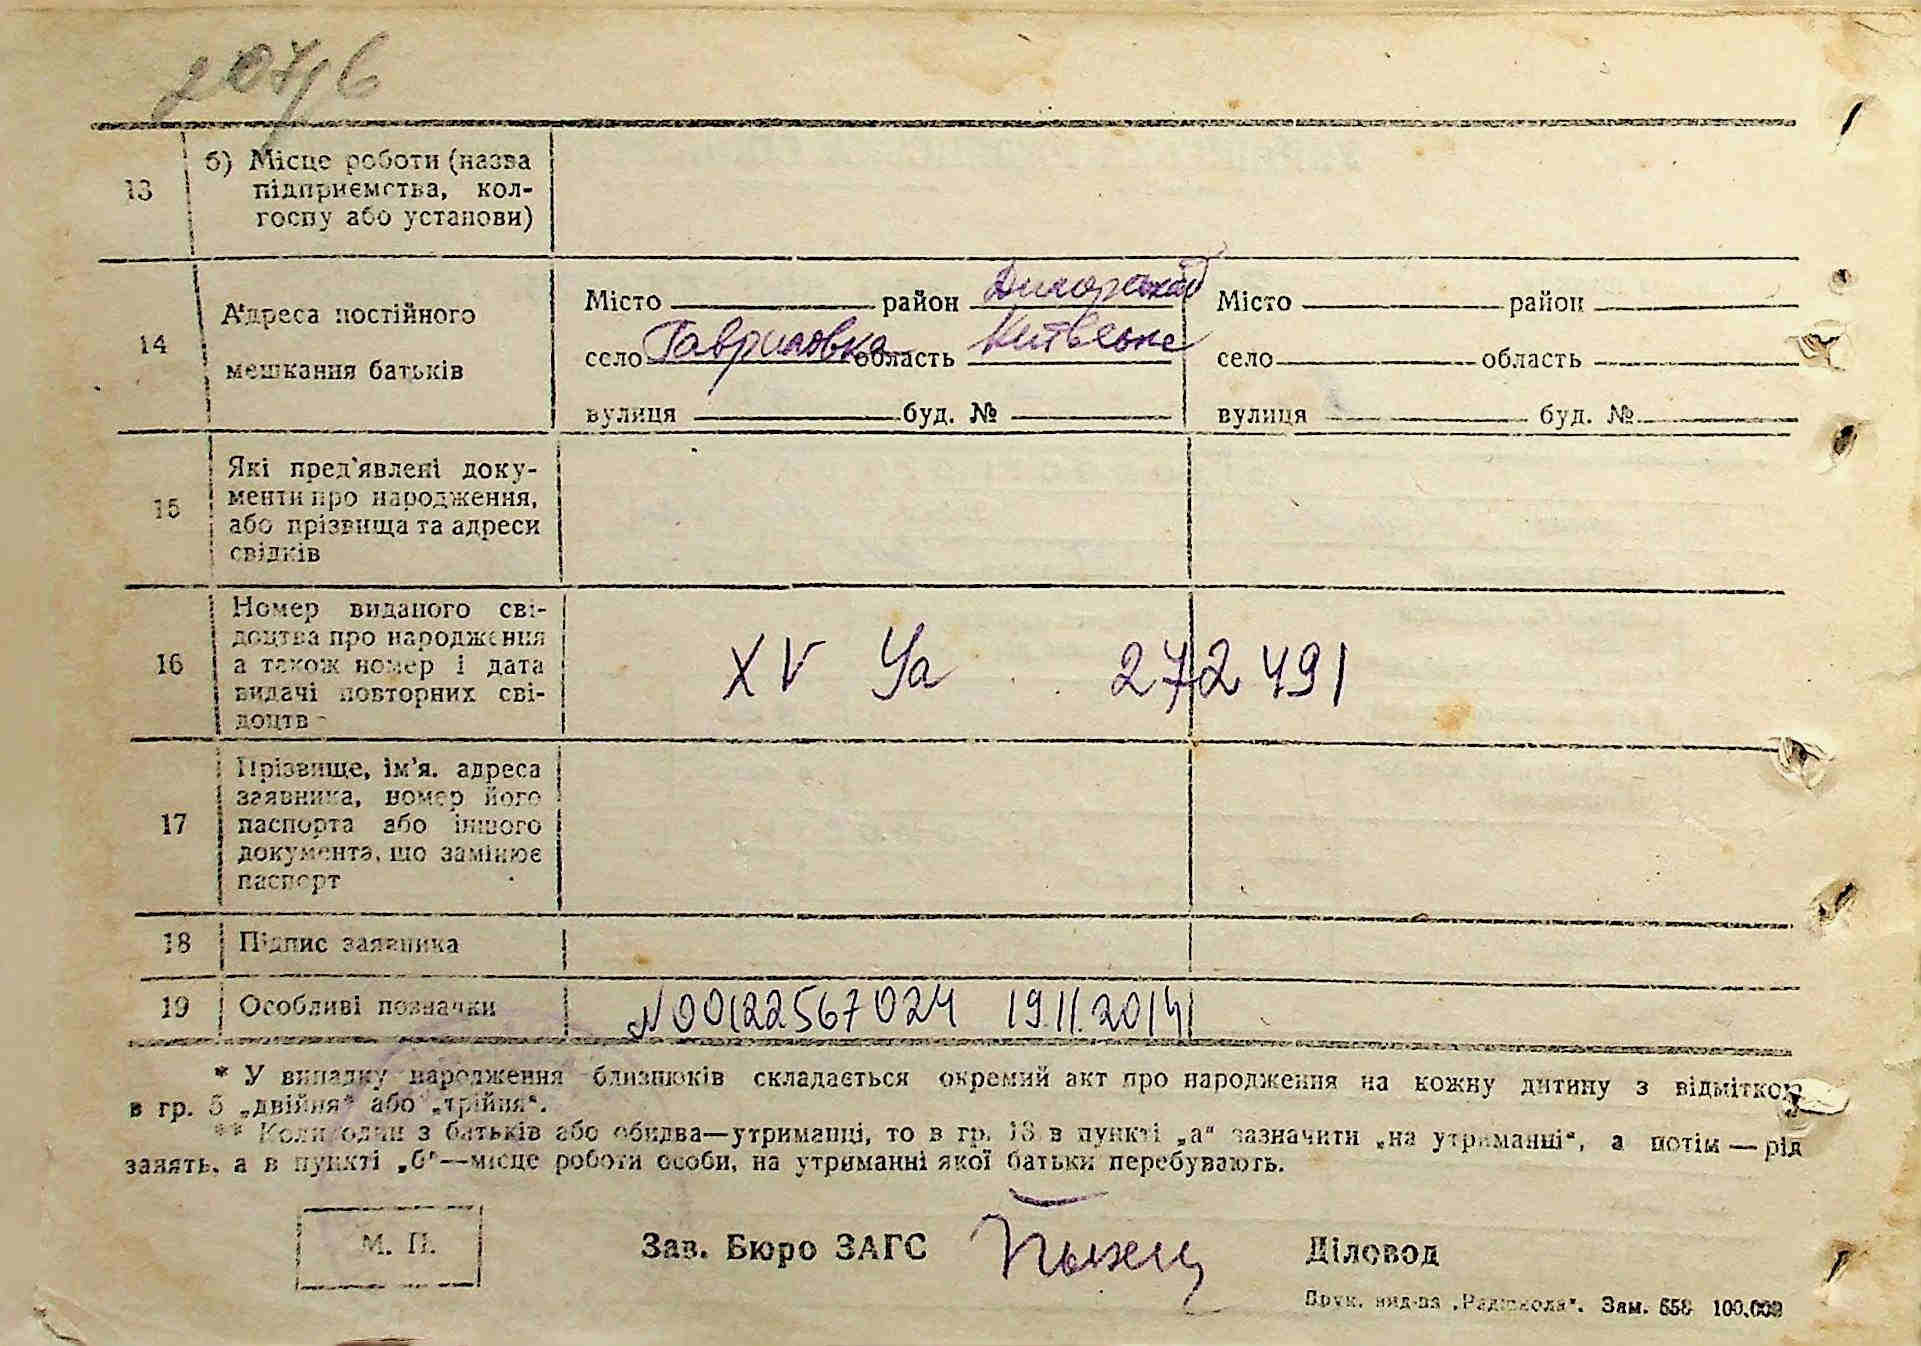 13 б) Місце роботи (назва
підприємства, кол-
госпу або установи)
14 Адреса постійного
мешкання батьків
Місто район Місто район
село Гавриловка область село область
вулиця буд. № вулиця буд. №
15 Які пред'явлені доку-
менти про народження,
або прізвища та адреси
свідків
16 Номер виданого сві-
доцтва про народження
а також номер і дата
видачі повторних сві-
доцтв
XV Уа 272491
17 Прізвище, ім'я, адреса
заявника, номер його
паспорта або іншого
документа, що замінює
паспорт
18 Підпис заявника
19 Особливі позначки N00122567024 19.11.2014
* У випадку народження близнюків складається окремий акт про народження на кожну дитину з відміткою
в гр. 5 „двійня“ або „трійня“.
** Коли один з батьків або обидва—утриманці, то в гр. 13 в пункті „а“ зазначити „на утриманні“, а потім — рід
занять, а в пункті „б“—місце роботи особи, на утриманні якої батьки перебувають.
М. П.
Зав. Бюро ЗАГС Діловод
Друк. вид-ва „Рад. школа“. Зам. 558 100.000